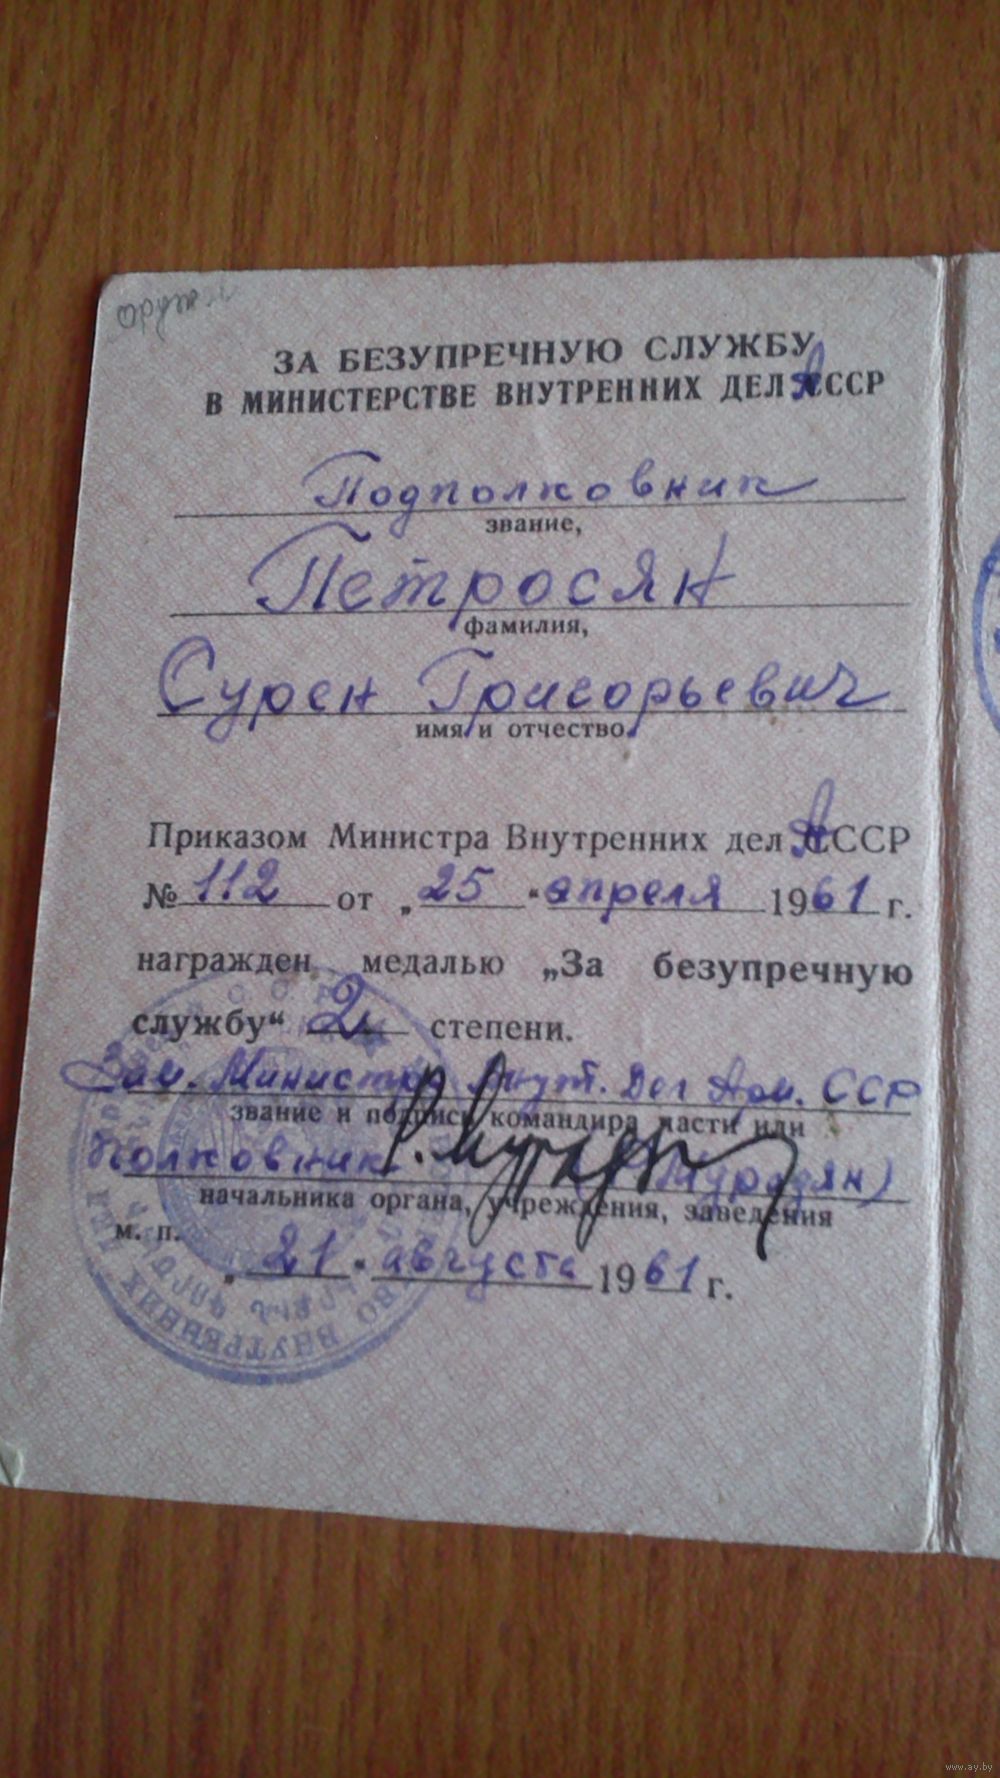 ЗА БЕЗУПРЕЧНУЮ СЛУЖБУ
В МИНИСТЕРСТВЕ ВНУТРЕННИХ ДЕЛ АССР
Подполковник
звание,
Петросян
фамилия,
Сурен Григорьевич
имя и отчество
Приказом Министра Внутренних дел АССР
№ 112 от „25“ апреля 1961 г.
награжден медалью „За безупречную
службу“ 2 степени.
Зам. Министра Внут. Дел Арм. ССР
звание и подпись командира части или
Полковник Мурадян)
начальника органа, учреждения, заведения
м. п.
„21“ августа 1961 г.
ВНУТРЕННИХ ДЕЛ
www.ay.by